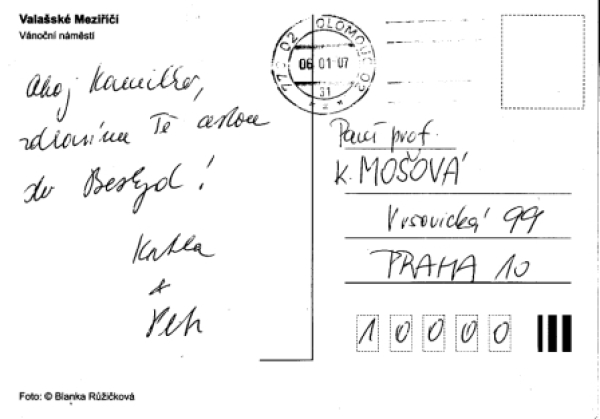 Valašské Meziříčí
Vánoční náměstí
770 02 OLOMOUC 02
06 01 07
31
Ahoj Kamilko,
zdravíme Tě cestou
do Beskyd!
Katka
+
Petr
Paní prof.
K. MOŠOVÁ
Vršovická 99
PRAHA 10
10000
Foto: © Blanka Růžičková